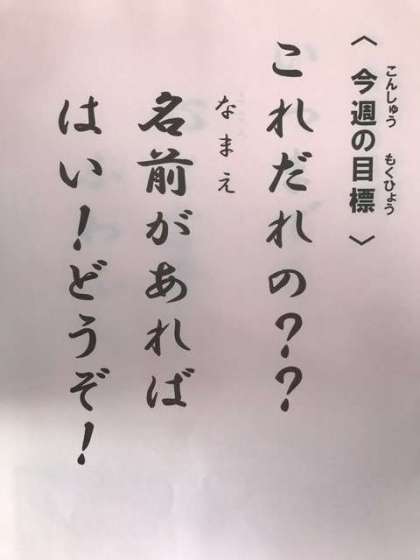 〈今週の目標〉
こんしゅう もくひょう
これだれの??
名前があれば
なまえ
はい!どうぞ!